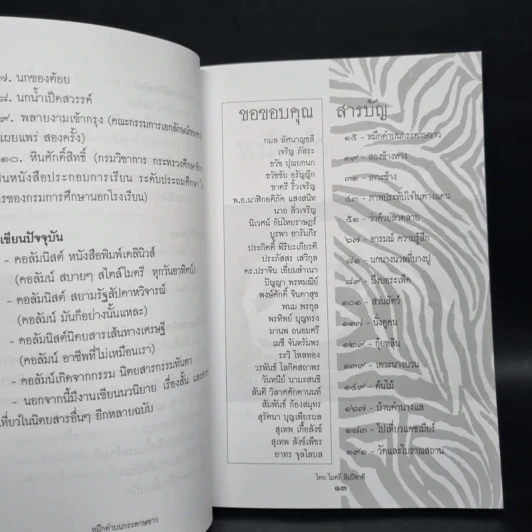 ๗. นกของค้อย
๘. นกน้ำเป็ดสวรรค์
๙. พลายงามเข้ากรุง (คณะกรรมการเอกลักษณ์ของชาติ
เผยแพร่ สองครั้ง)
๑๐. หินศักดิ์สิทธิ์ (กรมวิชาการ กระทรวงศึกษาธิการ
เป็นหนังสือประกอบการเรียน ระดับประถมศึกษา
ของกรมการศึกษานอกโรงเรียน)
เขียนปัจจุบัน
- คอลัมนิสต์ หนังสือพิมพ์เดลินิวส์
(คอลัมน์ สบายๆ สไตล์ไมตรี ทุกวันอาทิตย์)
- คอลัมนิสต์ สยามรัฐสัปดาหวิจารณ์
(คอลัมน์ มันก็อย่างนั้นแหละ)
- คอลัมนิสต์นิตยสารเส้นทางเศรษฐี
(คอลัมน์ อาชีพที่ไม่เหมือนเรา)
- คอลัมน์เกิดจากกรรม นิตยสารกรรมทันตา
- นอกจากนี้มีงานเขียนนวนิยาย เรื่องสั้น และ
เที่ยวในนิตยสารอื่นๆ อีกหลายฉบับ
หมึกดำบนกระดาษขาว
ขอขอบคุณ
กมล ทัศนาญชลี
เจริญ ภัสระ
ธวัช ปุณยกนก
ธวัชชัย อรัญญิก
ชาตรี รั้วเจริญ
พ.อ.นาฬิกอติภัค แสงสนิท
นาถ ลิ่วเจริญ
นิเวศน์ กันไทยราษฎร์
บูรพา อารัมภีร
ประกิตติ์ พิริยะเกียรติ
ประภัสสร เสวิกุล
ดร.ปราจิน เอี่ยมลำเนา
ปัญญา พรหมณีย์
พงษ์ศักดิ์ จินดาสุข
พนม พรกุล
พรทิพย์ บุญทรง
มานพ ถนอมศรี
เมธี จันทร์บพร
ระวิ โหลทอง
วรพันธ์ โลกิตสถาพร
วันทนีย์ นามะสนธิ
สันติ วิลาสศักดานนท์
สัมพันธ์ ก้องสมุทร
สุรัตนา บุญเพียรผล
สุเทพ เกื้อสังข์
สุเทพ สังข์เพ็ชร
อาทร จุลโลบล
สารบัญ
๑๕ - หมึกดำบนกระดาษขาว
๑๙ - สองข้างทาง
๓๑ - เกาะช้าง
๔๓ - ภาพประทับใจในต่างแดน
๕๑ - ว่าด้วยลวดลาย
๖๗ - อารมณ์ ความรู้สึก
๘๑ - นกนางนวลที่บางปู
๘๙ - บึงบระเพ็ด
๑๐๑ - สวนสัตว์
๑๑๗ - นั่งดูคน
๑๒๙ - กุ้ยหลิน
๑๓๙ - เกาะนางยวน
๑๔๙ - ต้นไม้
๑๖๗ - บ้านคำนางแล
๑๘๓ - ไปเที่ยวแคชเมียร์
๑๙๑ - วัดและโบราณสถาน
โดย ไมตรี ลิมปิชาติ
๑๓